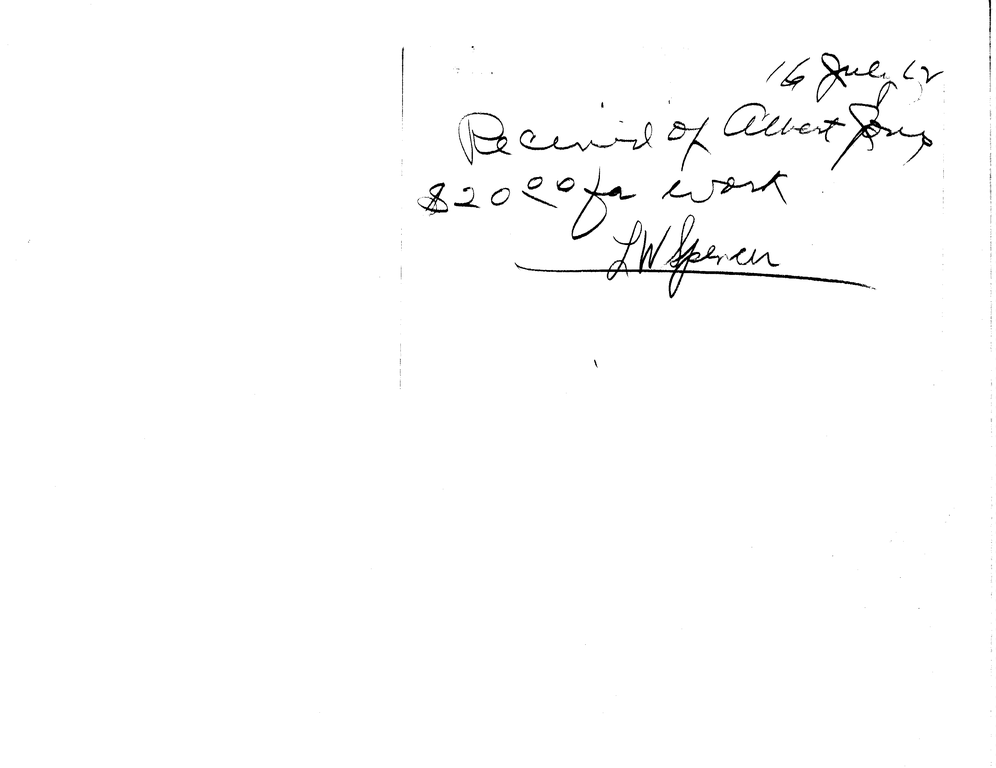 16 July 62
Received of Albert Jones
$20.00 for work
LW Spencer